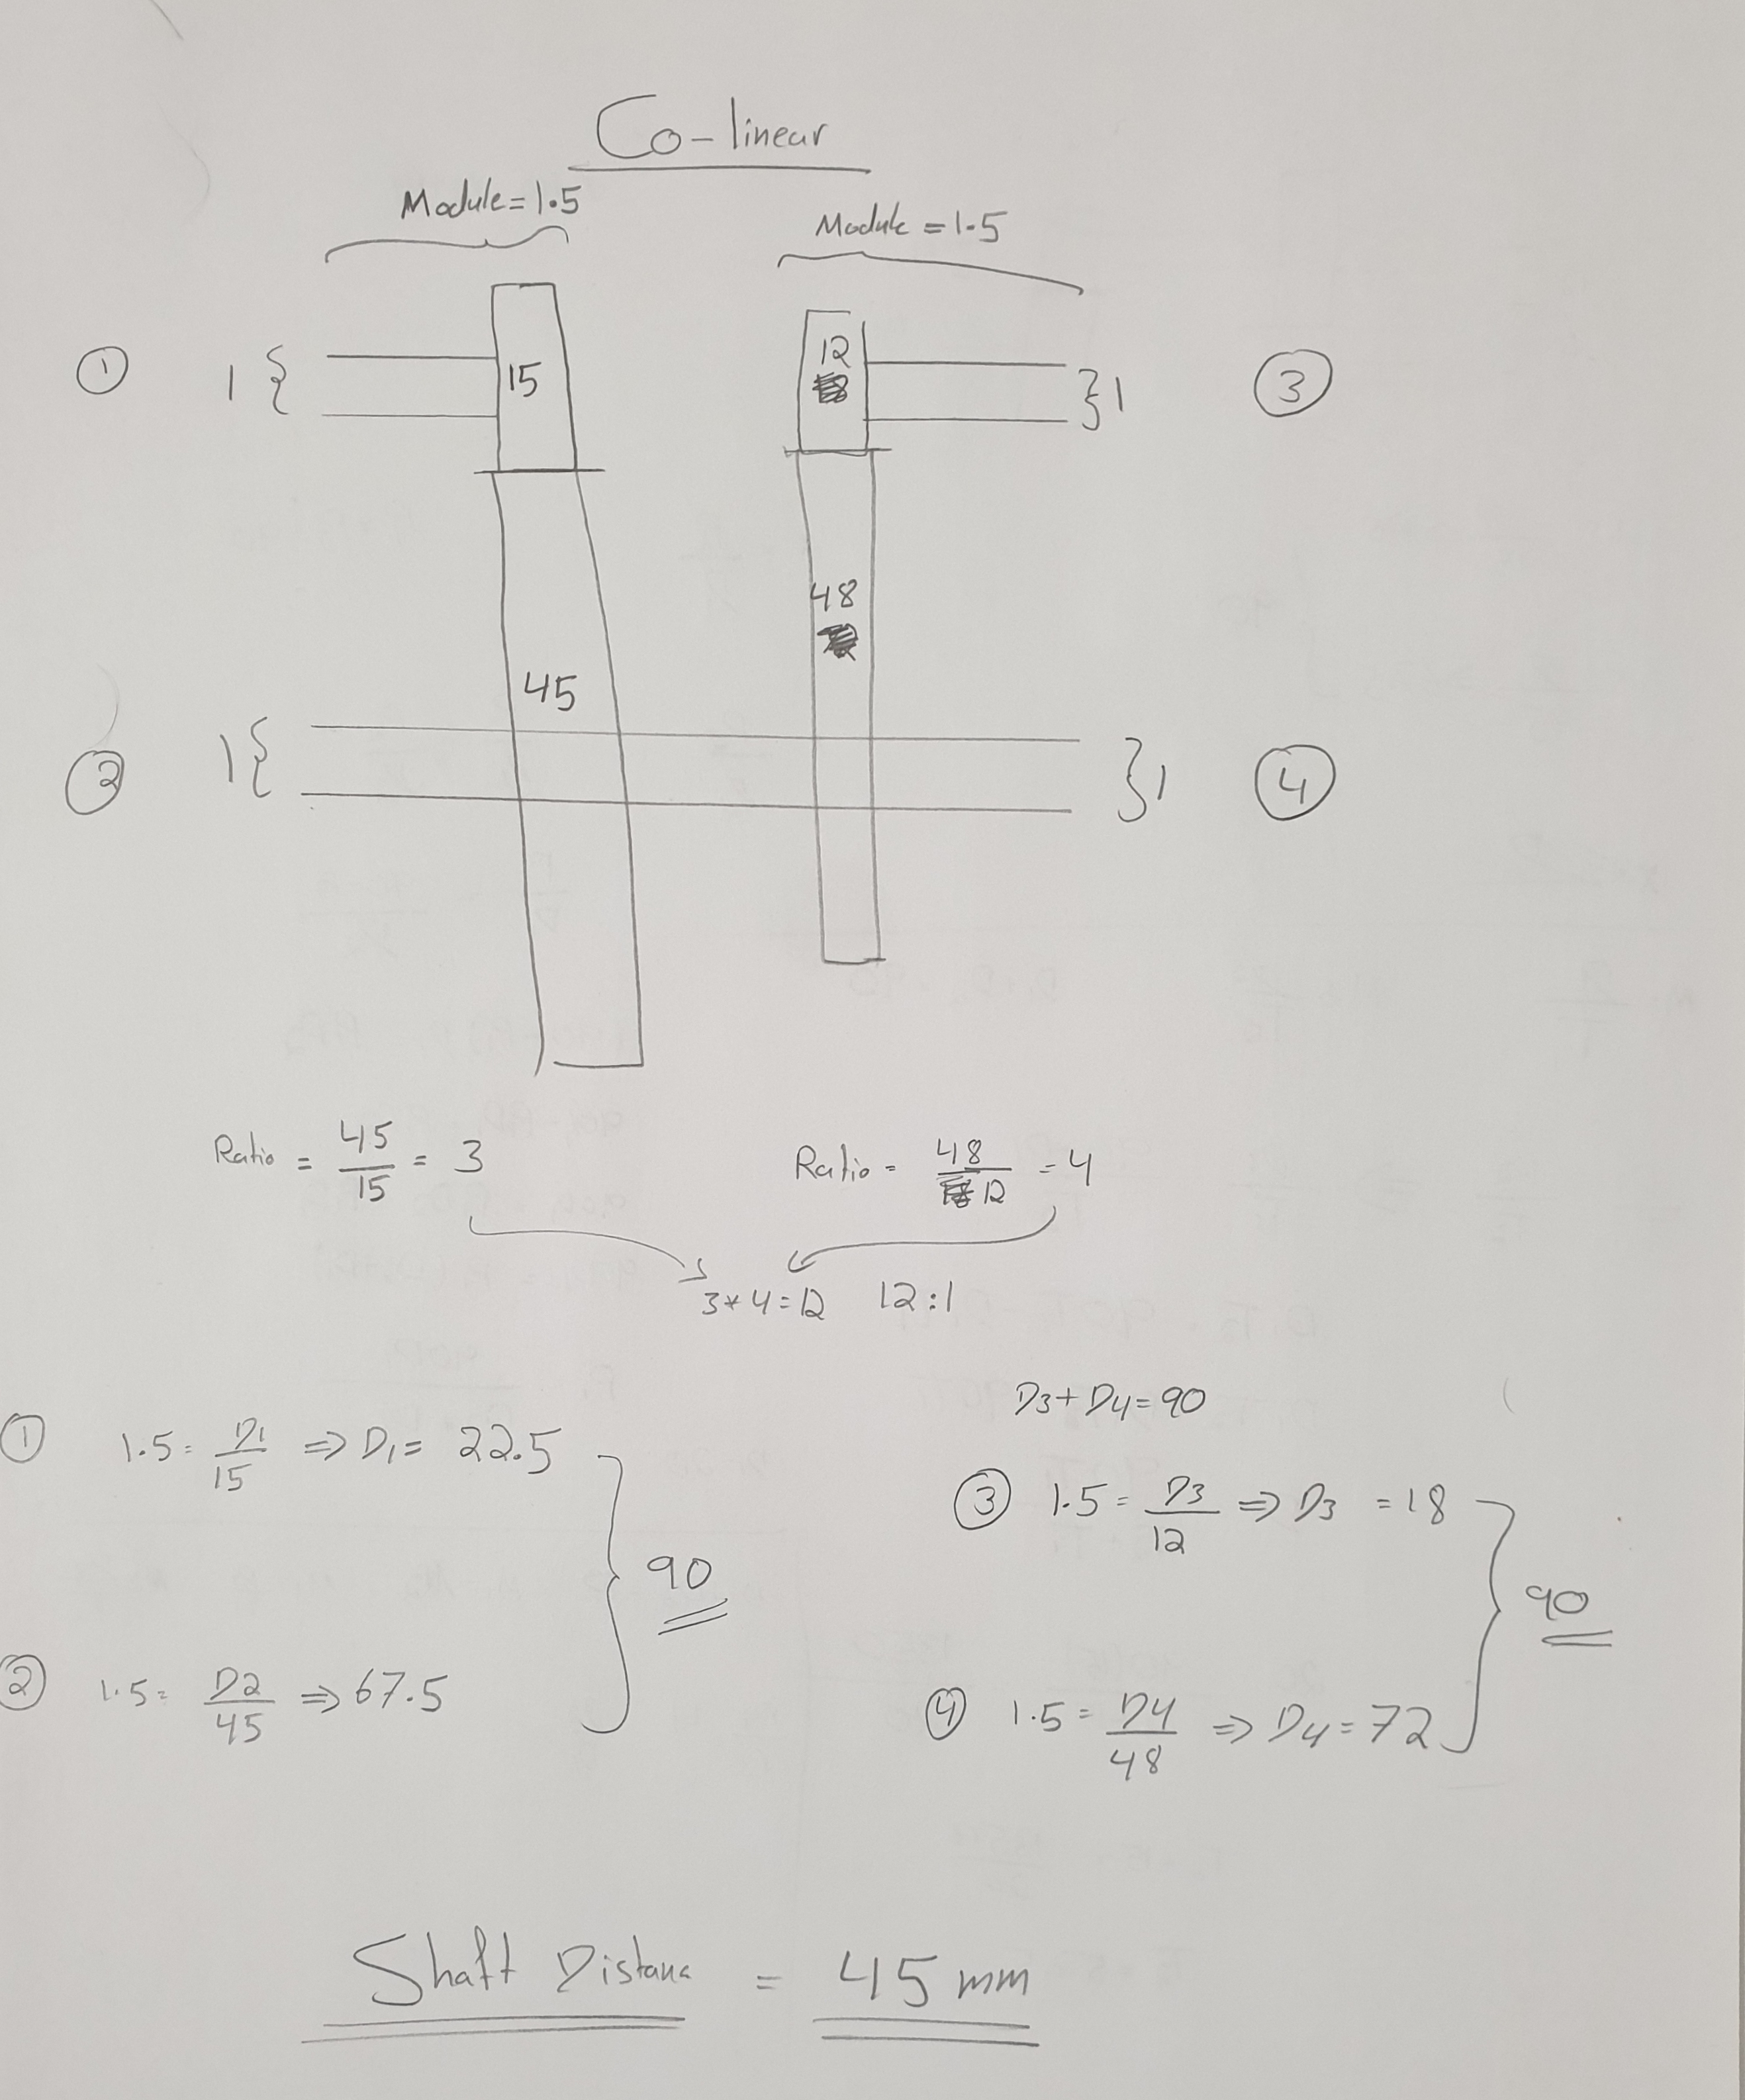 Co-linear
Module = 1.5
Module = 1.5
1
1
15
12
1
3
45
48
2
1
1
4
Ratio = 45/15 = 3
Ratio = 48/12 = 4
3*4=12 12:1
D3+D4=90
1 1.5 = D1/15 => D1 = 22.5
90
2 1.5 = D2/45 => 67.5
3 1.5 = D3/12 => D3 = 18
90
4 1.5 = D4/48 => D4 = 72
Shaft = 45 mm